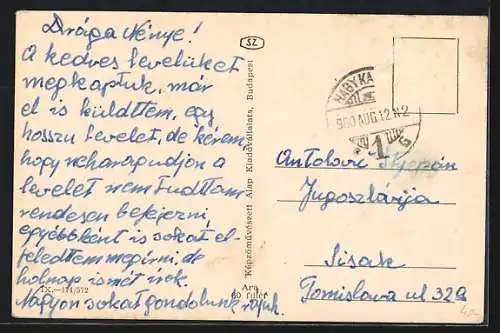 Drága Nénye!
A kedves levelüket
megkaptuk, már
el is küldtem, egy
hosszu levelet, de kérem
hogy neharagudjon a
levelet nem tudtam
rendesen befejezni,
egyébbként is sokat el-
feledtem megirni, de
holnap ismét irok.
Nagyon sokat gondolunk rájuk.
IX.—174/572
Ára
60 fillér
Képzőművészeti Alap Kiadóvállalata, Budapest
SZ
NAGYKA
960 AUG 12 N 2
1
Antolovic Stjepan
Jugoszlávija
Sisak
Tomislava ul 32a